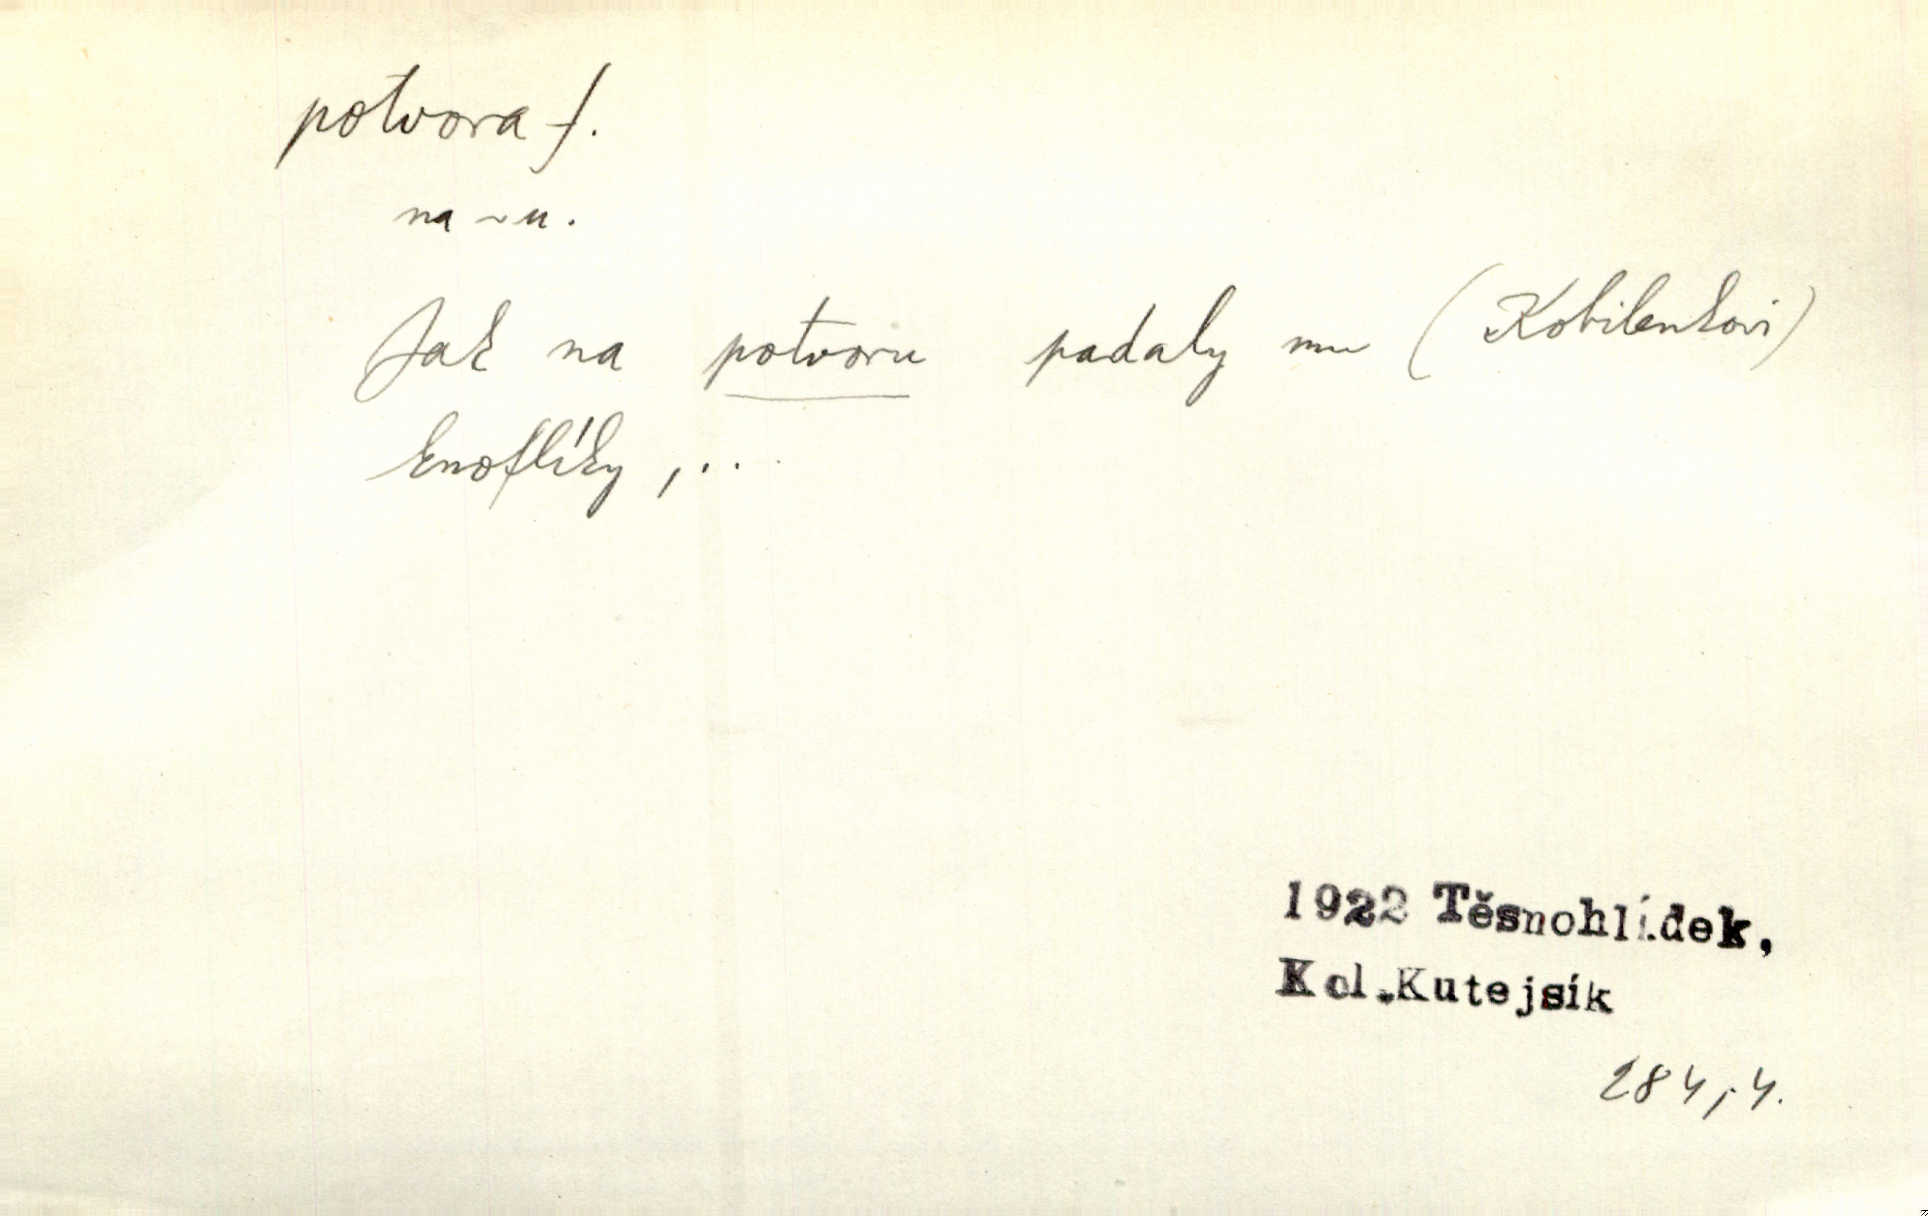 potvora f.
na ~u.
Jak na potvoru padaly mu (Kobilenkovi)
knoflíky,...
1922 Těsnohlídek,
Kol.Kutejsík
284,4.